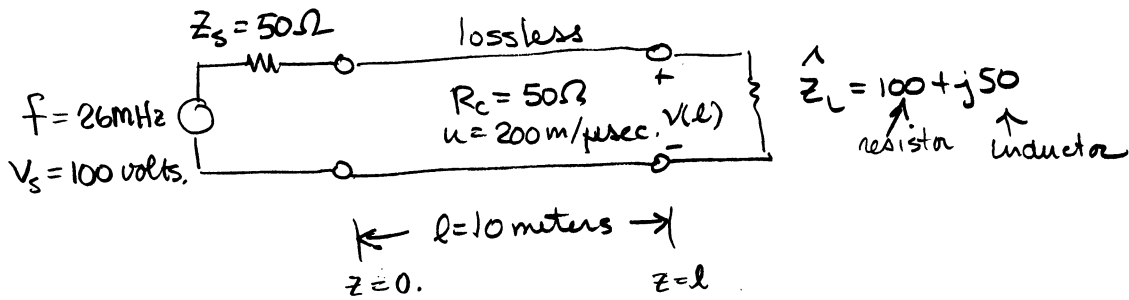 Z_s = 50Ω
lossless
f = 26mHz
V_s = 100 volts.
R_c = 50Ω
u = 200 m/μsec.
+
V(l)
-
Ẑ_L = 100 + j50
resistor
inductor
l = 10 meters
z = 0.
z = l